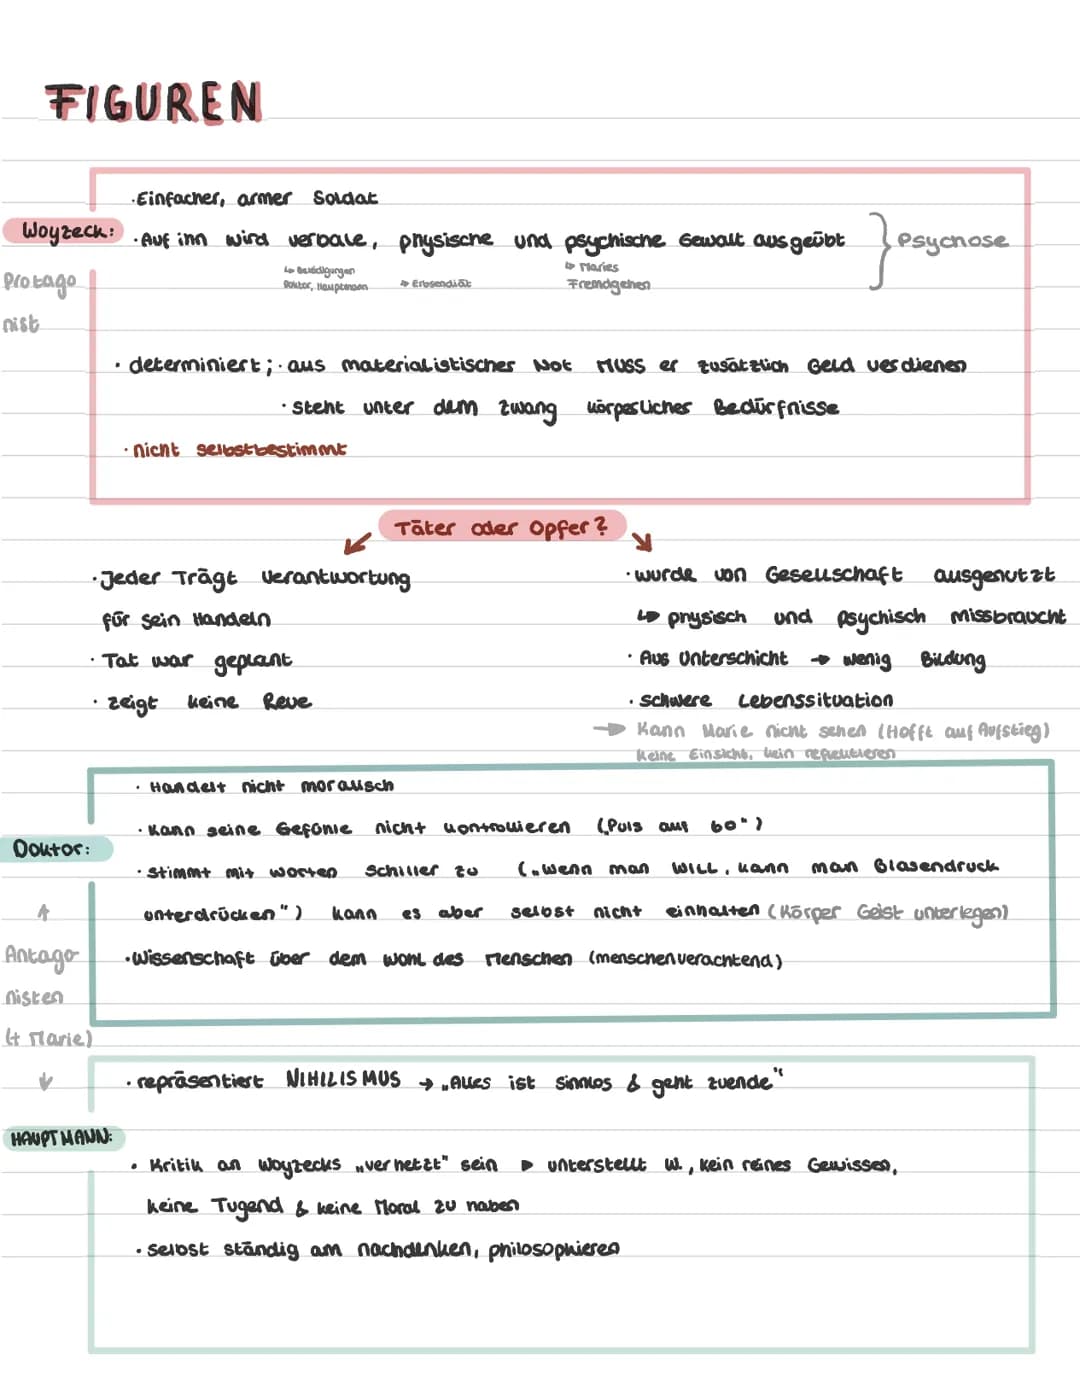 FIGUREN
·Einfacher, armer Soldat
Woyzeck:
·Auf ihn wird verbale, physische und psychische Gewalt ausgeübt } Psychose
↳ Beleidigungen Doktor, Hauptmann
→ Erbsendiät
↳ Maries Fremdgehen
Protago
nist
· determiniert; · aus materialistischer Not MUSS er zusätzlich Geld verdienen
· steht unter dem Zwang körperlicher Bedürfnisse
· nicht selbstbestimmt
Täter oder Opfer?
· Jeder Trägt Verantwortung
für sein Handeln
· Tat war geplant
· zeigt keine Reue
· wurde von Gesellschaft ausgenutzt
↳ physisch und psychisch missbraucht
· Aus Unterschicht → wenig Bildung
· schwere Lebenssituation
→ Kann Marie nicht sehen (Hofft auf Aufstieg)
keine Einsicht, kein reflektieren
· Handelt nicht moralisch
· Kann seine Gefühle nicht kontrollieren („Puls auf 60")
Doktor:
· stimmt mit worten Schiller zu („wenn man will, kann man Blasendruck
unterdrücken") kann es aber selbst nicht einhalten (Körper Geist unterlegen)
·Wissenschaft über dem wohl des Menschen (menschenverachtend)
↑
Antago
nisten
(+ Marie)
↓
· repräsentiert NIHILISMUS → „Alles ist sinnlos & geht zuende"
HAUPTMANN:
· Kritik an Woyzecks „verhetzt" sein ▸ unterstellt W., kein reines Gewissen,
keine Tugend & keine Moral zu haben
· selbst ständig am nachdenken, philosophieren